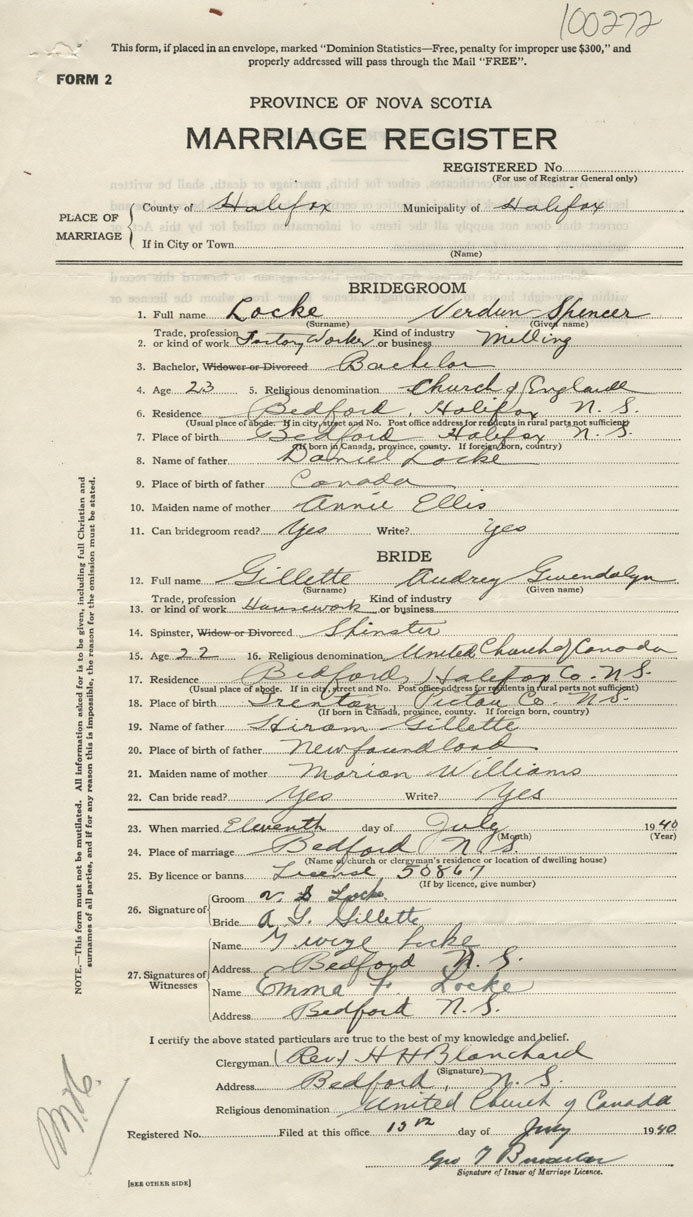 100272
This form, if placed in an envelope, marked "Dominion Statistics—Free, penalty for improper use $300," and
properly addressed will pass through the Mail "FREE".
FORM 2
PROVINCE OF NOVA SCOTIA
MARRIAGE REGISTER
REGISTERED No.
(For use of Registrar General only)
PLACE OF MARRIAGE
County of Halifax Municipality of Halifax
If in City or Town
(Name)
BRIDEGROOM
1. Full name Locke Verdun Spencer
(Surname) (Given name)
Trade, profession Kind of industry
2. or kind of work Factory Worker or business Milling
3. Bachelor, Widower or Divorced Bachelor
4. Age 23 5. Religious denomination Church of England
6. Residence Bedford, Halifax N. S.
(Usual place of abode. If in city, street and No. Post office address for residents in rural parts not sufficient)
7. Place of birth Bedford Halifax N. S.
(If born in Canada, province, county. If foreign born, country)
8. Name of father Daniel Locke
9. Place of birth of father Canada
10. Maiden name of mother Annie Ellis
11. Can bridegroom read? Yes Write? yes
BRIDE
12. Full name Gillette Audrey Gwendolyn
(Surname) (Given name)
Trade, profession Kind of industry
13. or kind of work Housework or business
14. Spinster, Widow or Divorced Spinster
15. Age 22 16. Religious denomination United Church of Canada
17. Residence Bedford, Halifax Co. N.S.
(Usual place of abode. If in city, street and No. Post office address for residents in rural parts not sufficient)
18. Place of birth Trenton, Pictou Co. N.S.
(If born in Canada, province, county. If foreign born, country)
19. Name of father Hiram Gillette
20. Place of birth of father Newfoundland
21. Maiden name of mother Marion Williams
22. Can bride read? Yes Write? Yes
23. When married Eleventh day of July 1940
(Month) (Year)
24. Place of marriage Bedford N S.
(Name of church or clergyman's residence or location of dwelling house)
25. By licence or banns License, 50867
(If by licence, give number)
26. Signature of
Groom V. S Locke
Bride A G. Gillette
27. Signatures of Witnesses
Name George Locke
Address Bedford N. S.
Name Emma F. Locke
Address Bedford N.S.
I certify the above stated particulars are true to the best of my knowledge and belief.
Clergyman (Rev) H H Blanchard
(Signature)
Address Bedford, N. S.
Religious denomination United Church of Canada
Registered No. Filed at this office 13th day of July 1940
Geo T
Signature of Issuer of Marriage Licence.
[SEE OTHER SIDE]
NOTE.—This form must not be mutilated. All information asked for is to be given, including full Christian and
surnames of all parties, and if for any reason this is impossible, the reason for the omission must be stated.